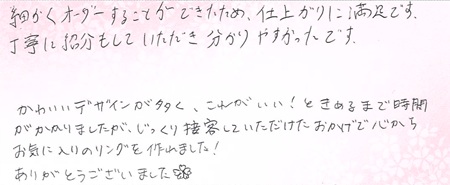 細かくオーダーすることができたため、仕上がりに満足です。
丁寧に紹介もしていただき分かりやすかったです。
かわいいデザインが多く、これがいい！ときめるまで時間
がかかりましたが、じっくり接客していただけたおかげで心から
お気に入りのリングを作れました！
ありがとうございました